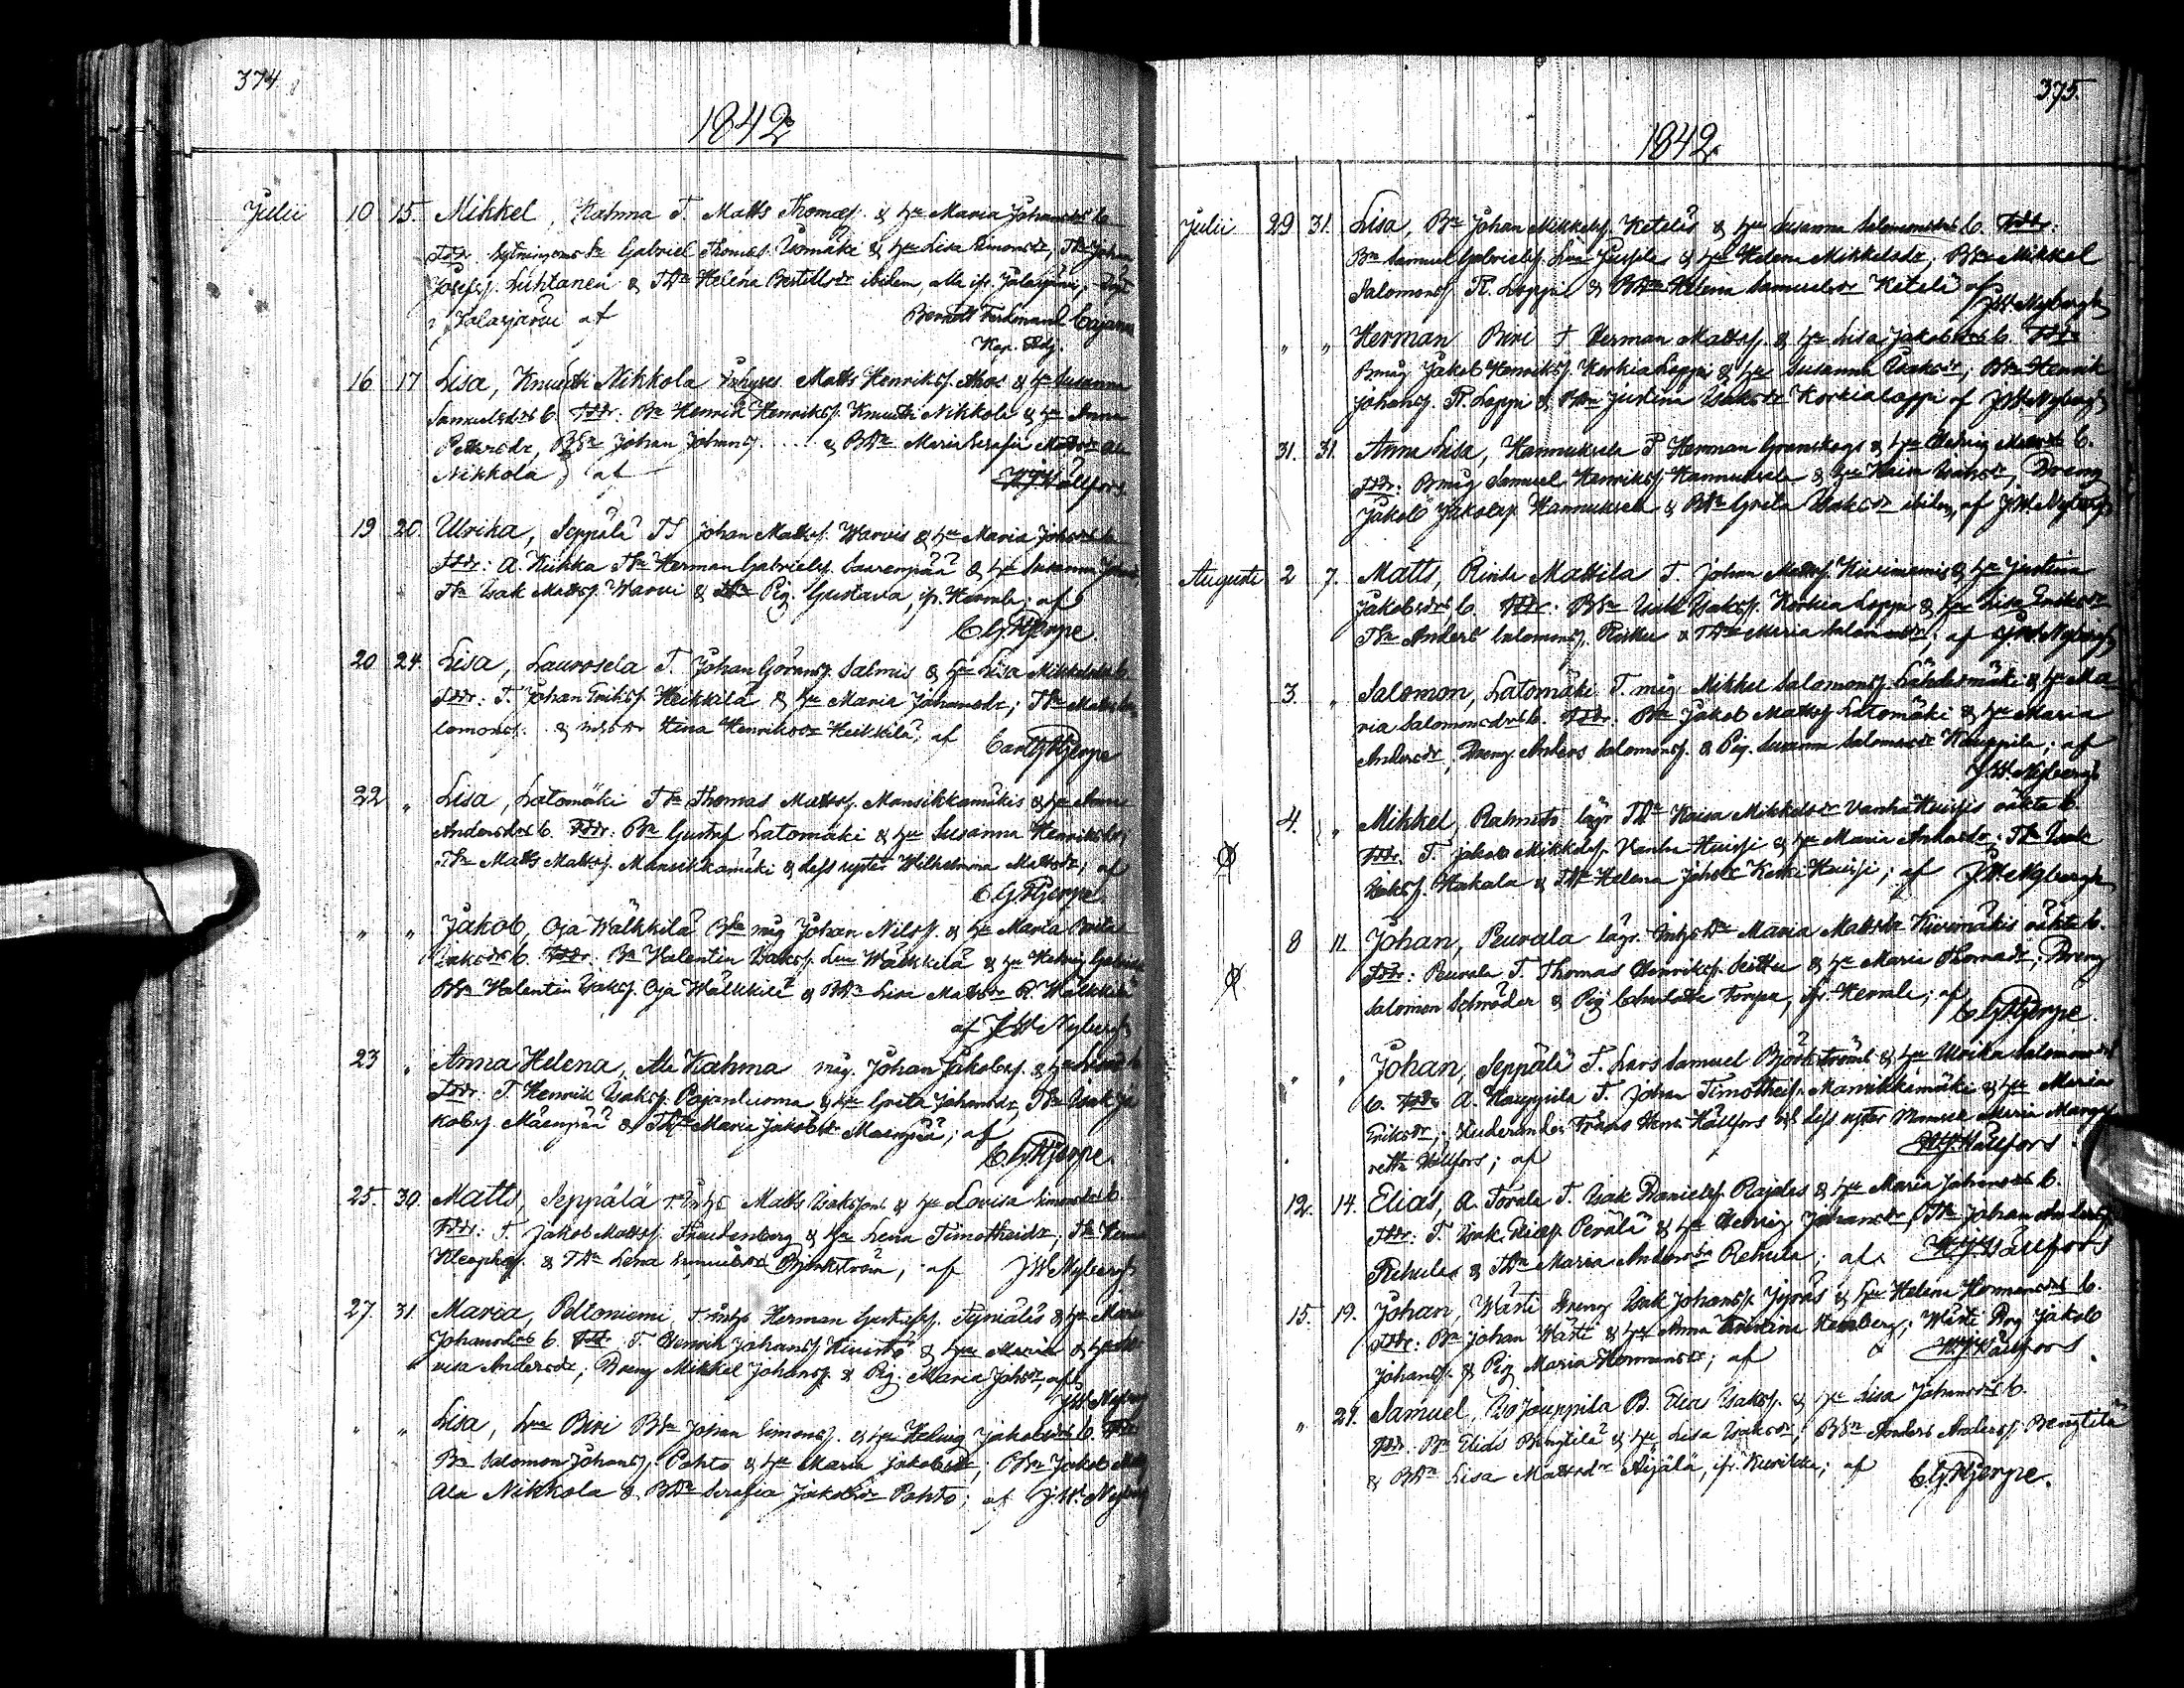 374
1842
Julii 10 15. Mikkel, Kahma T. Matts Thomæs. & hu Maria Johansdr b.
Fddr. Sytningsm Sn Gabriel Thomæs. & hu Lisa Simonsdr, TSn Johan
Josefs. Luhtanen & TDr Helena Bertilsdr ibidem, alla ifr. Jalasjärvi;
i Jalasjärvi af Berndt Ferdinand Cajanus
Kap. Adj.
16 17 Lisa, Knuuti Nikkola Inhyses Matts Henrikss. & hu Susanna
Samuelsdrs b. Fddr: Bn Henrik Henrikss. Knuuti Nikkola & hu Anna
Pettersdr, BSn Johan Johanss. .... & BDr Maria Serafia Mattsdr Ala
Nikkola; af Hällfors
19 20 Ulrika, Seppälä TS Johan Matts. Warvis & hu Maria Johsdrs b.
Fddr: A. Kiikka TSn Herman Gabriels. Saarenpää & hu Susanna
TSn Isak Matts. Warvi & Pig. Gustava, ifr. Kerrala; af
C G Hjerpe.
20 24. Lisa, Laurosela T. Johan Görans. Salmis & hu Lisa Mikkelsdr b.
Fddr: T. Johan Eriks. Heikkilä & hu Maria Johansdr; TSn Matts Sa
lomons. & Hena Henriksdr Heikkilä; af Carl G Hjerpe
22 " Lisa, Latomäki TSn Thomas Matts. Mansikkamäkis & hu Anna
Andersdrs b. Fddr: Bn Gustaf Latomäki & hu Susanna Henriksdr,
TSn Matts Matts. Mansikkamäki & dess syster Wilhelmina Mattsdr; af
C G Hjerpe
" " Jakob, Oja Wälkkilä BSn måg Johan Nilss. & hu Maria Brita
Isaksdrs b. Fddr: Bn Valentin Isaks. Wälkkilä & hu Hedvig
BSn Valentin Isaks. Oja Wälkkilä & BDr Lisa Mattsdr R. Wälkkilä
af J W Nybergh
23 " Anna Helena, Ala Kahma måg. Johan Jakobs. & hu
Fddr: T. Henrik Isaks. Pajanluoma & hu Greta Johansdr, TSn Isak Ja
kobs. Mäenpää & TDr Maria Jakobsdr Mäenpää; af
C. G Hjerpe.
25. 30. Matts, Seppälä T. Inhs Matts Isakssons & hu Lovisa Simonsdrs b.
Fddr: T. Jakob Matts. Freudenberg & hu Lena Timotheidr; TSn
Kleophas. & TDr Lena Samuelsdr Björkström, af J W Nybergh
27. 31 Maria, Peltoniemi, T. inhs Herman Gustafs. & hu Maria
Johansdrs b. Fddr. T. Henrik Johans. Kivistö & hu Maria & hu
visa Andersdr; Dreng Mikkel Johans. & Pig. Maria Johsdr, af
J W Nybergh
" " Lisa, Lva Biri BSn Johan Simons. & hu Hedvig Jakobsdrs b. Fddr
Bn Salomon Johans. Pahto & hu Maria Jakobsdr; BSn Jakob
Ala Nikkola & BDr Serafia Jakobsdr Pahto; af J. W. Nybergh
375.
1842
Julii 29 31. Lisa, Bn Johan Mikkels. Ketelis & hu Susanna Salomonsdrs b. Fddr:
Bn Samuel Gabriels. Lva & hu Helena Mikkelsdr, BSn Mikkel
Salomons. R. Loppi & BDr Helena Samuelsdr Keteli af
J W Nybergh
" " Herman Biri T Herman Matts. & hu Lisa Jakobsdrs b. Fddr
Bmåg Jakob Henriks. Korkialoppi & hu Susanna Isaksdr, BSn Henrik
Johans. R. Loppi & BDr Justina Isaksdr Korkialoppi af J W Nybergh
31. 31. Anna Lisa, Hannuksela T Herman Granskogs & hu Hedvig b.
Fddr: Bmåg Samuel Henriks. Hannuksela & hu Kaisa Isaksdr, Dreng
Jakob Jakobs. Hannuksela & BDr Greta Isaksdr ibidem, af J W Nybergh
Augusti 2 7. Matts, Rinta Mattila T. Johan Matts. Kurimannis & hu Justina
Jakobsdrs b. Fddr: BSn Isak Isaks. Korkia Loppi & hu Lisa Eriksdr
TSn Anders Salomons. & TDr Maria Salomonsdr; af J W Nybergh
3. " Salomon, Latomäki T. måg Mikkel Salomons. & hu Ma
ria Salomonsdrs b. Fddr: Bn Jakob Matts. Latomäki & hu Maria
Andersdr; Dreng Anders Salomons. & Pig. Susanna Salomonsdr Kauppila; af
J W. Nybergh
4. " Mikkel, Rahnasto lägr TDr Kaisa Mikkelsdr Vanha Huissis oäkta b.
Fddr. T. Jakob Mikkels. Vanha Huissi & hu Maria Andersdr; TSn Isak
Isaks. Hakala & TDr Helena Johsdr Keski Huissi; af J W Nybergh
8 11. Johan, Peurala lägr. Inhs Dr Maria Mattsdr Kivimäkis oäkta b.
Fddr: Peurala T. Thomas Henriks. & hu Maria Thomasdr; Dreng
Salomon Schröder & Pig Charlotta Tompa, ifr. Kerrala; af
C G Hjerpe
" " Johan, Seppälä T. Lars Samuel Björkström & hu Ulrika Salomonsdrs
b. Fddr A. Kauppila T. Johan Timotheis. Mansikkamäki & hu Maria
Eriksdr; Studerande Frans Hällfors & dess syster Mamsell Maria Marga
retha Hällfors; af Hällfors
12. 14. Elias, A. Torala T. Isak Daniels. Rajalas & hu Maria Johansdr b.
Fddr: T. Isak Elias. Perälä & hu Hedvig Johansdr, TSn Johan Anders.
Rehula & TDr Maria Andersdr Rehula; af. Hällfors
15. 19. Johan, Wästi Dreng Isak Johans. Jyräs & hu Helena Hermansdrs b.
Fddr: Bn Johan Wästi & hu Anna Kristina; Wästi Drg Jakob
Johans. & Pig Maria Hermansdr; af Hällfors
" 29. Samuel, Jouppila B. Elias Isaks. & hu Lisa Johansdrs b.
Fddr. Bn Elias Bengtilä & hu Lisa Isaksdr; BSn Anders Anders. Bengtilä
& BDr Lisa Mattsdr Äijälä, ifr. Kurikka; af C. G. Hjerpe.